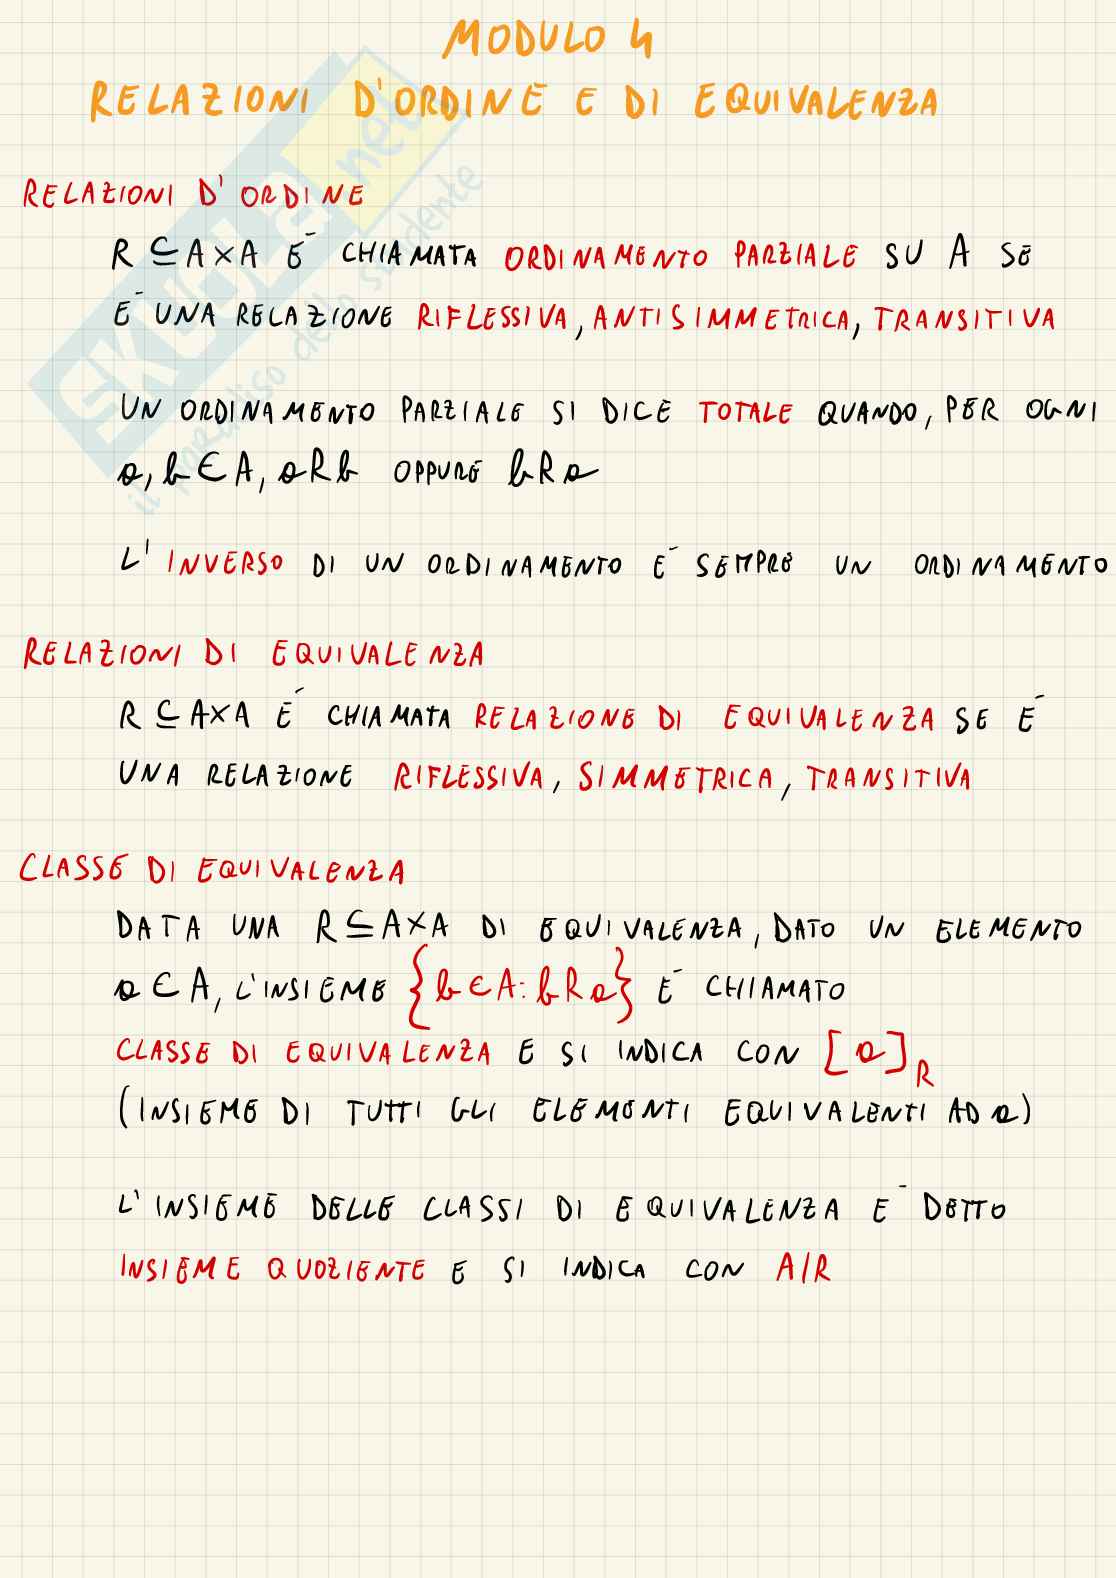 MODULO 4
RELAZIONI D'ORDINE E DI EQUIVALENZA
RELAZIONI D'ORDINE
R ⊆ A×A È CHIAMATA ORDINAMENTO PARZIALE SU A SE
È UNA RELAZIONE RIFLESSIVA, ANTISIMMETRICA, TRANSITIVA
UN ORDINAMENTO PARZIALE SI DICE TOTALE QUANDO, PER OGNI
a, b ∈ A, aRb OPPURE bRa
L'INVERSO DI UN ORDINAMENTO È SEMPRE UN ORDINAMENTO
RELAZIONI DI EQUIVALENZA
R ⊆ A×A È CHIAMATA RELAZIONE DI EQUIVALENZA SE È
UNA RELAZIONE RIFLESSIVA, SIMMETRICA, TRANSITIVA
CLASSE DI EQUIVALENZA
DATA UNA R ⊆ A×A DI EQUIVALENZA, DATO UN ELEMENTO
a ∈ A, L'INSIEME {b ∈ A : bRa} È CHIAMATO
CLASSE DI EQUIVALENZA E SI INDICA CON [a]R
(INSIEME DI TUTTI GLI ELEMENTI EQUIVALENTI AD a)
L'INSIEME DELLE CLASSI DI EQUIVALENZA È DETTO
INSIEME QUOZIENTE E SI INDICA CON A/R
SKUOLA.net
il paradiso dello studente